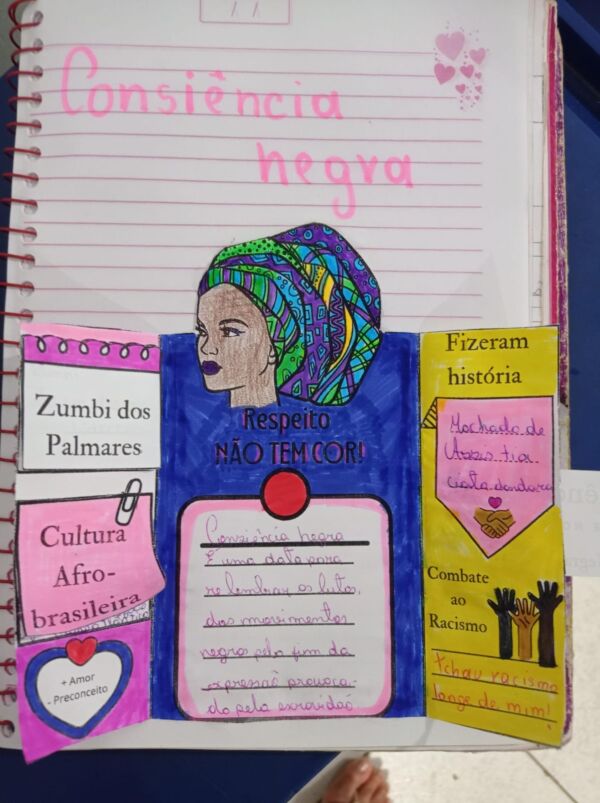 Consiência
negra
Zumbi dos
Palmares
Cultura
Afro-
brasileira
+ Amor
- Preconceito
Respeito
NÃO TEM COR!
Consiência negra
É uma data para
relembrar as lutas,
dos movimentos
negros pelo fim da
provoca-
do pela
Fizeram
história
Machado de
Combate
ao
Racismo
tchau racismo
longe de mim!